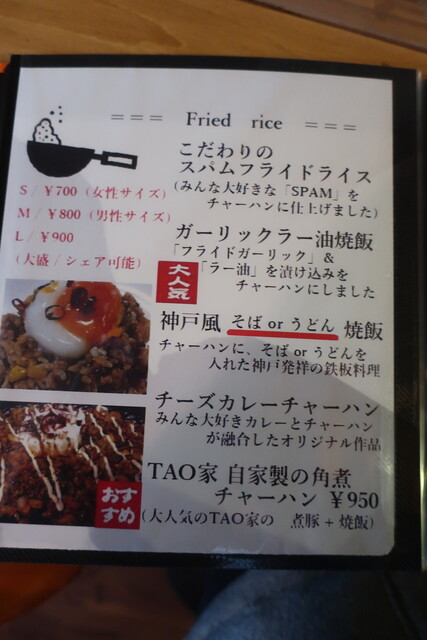 === Fried rice ===
こだわりの
スパムフライドライス
(みんな大好きな「SPAM」を
チャーハンに仕上げました)
S / ¥700 (女性サイズ)
M / ¥800 (男性サイズ)
L / ¥900
(大盛 / シェア可能)
ガーリックラー油焼飯
「フライドガーリック」&
「ラー油」を漬け込みを
チャーハンにしました
大人気
神戸風 そば or うどん 焼飯
チャーハンに、そば or うどんを
入れた神戸発祥の鉄板料理
チーズカレーチャーハン
みんな大好きカレーとチャーハン
が融合したオリジナル作品
TAO家 自家製の角煮
チャーハン ¥950
(大人気のTAO家の 煮豚 + 焼飯)
おすすめ